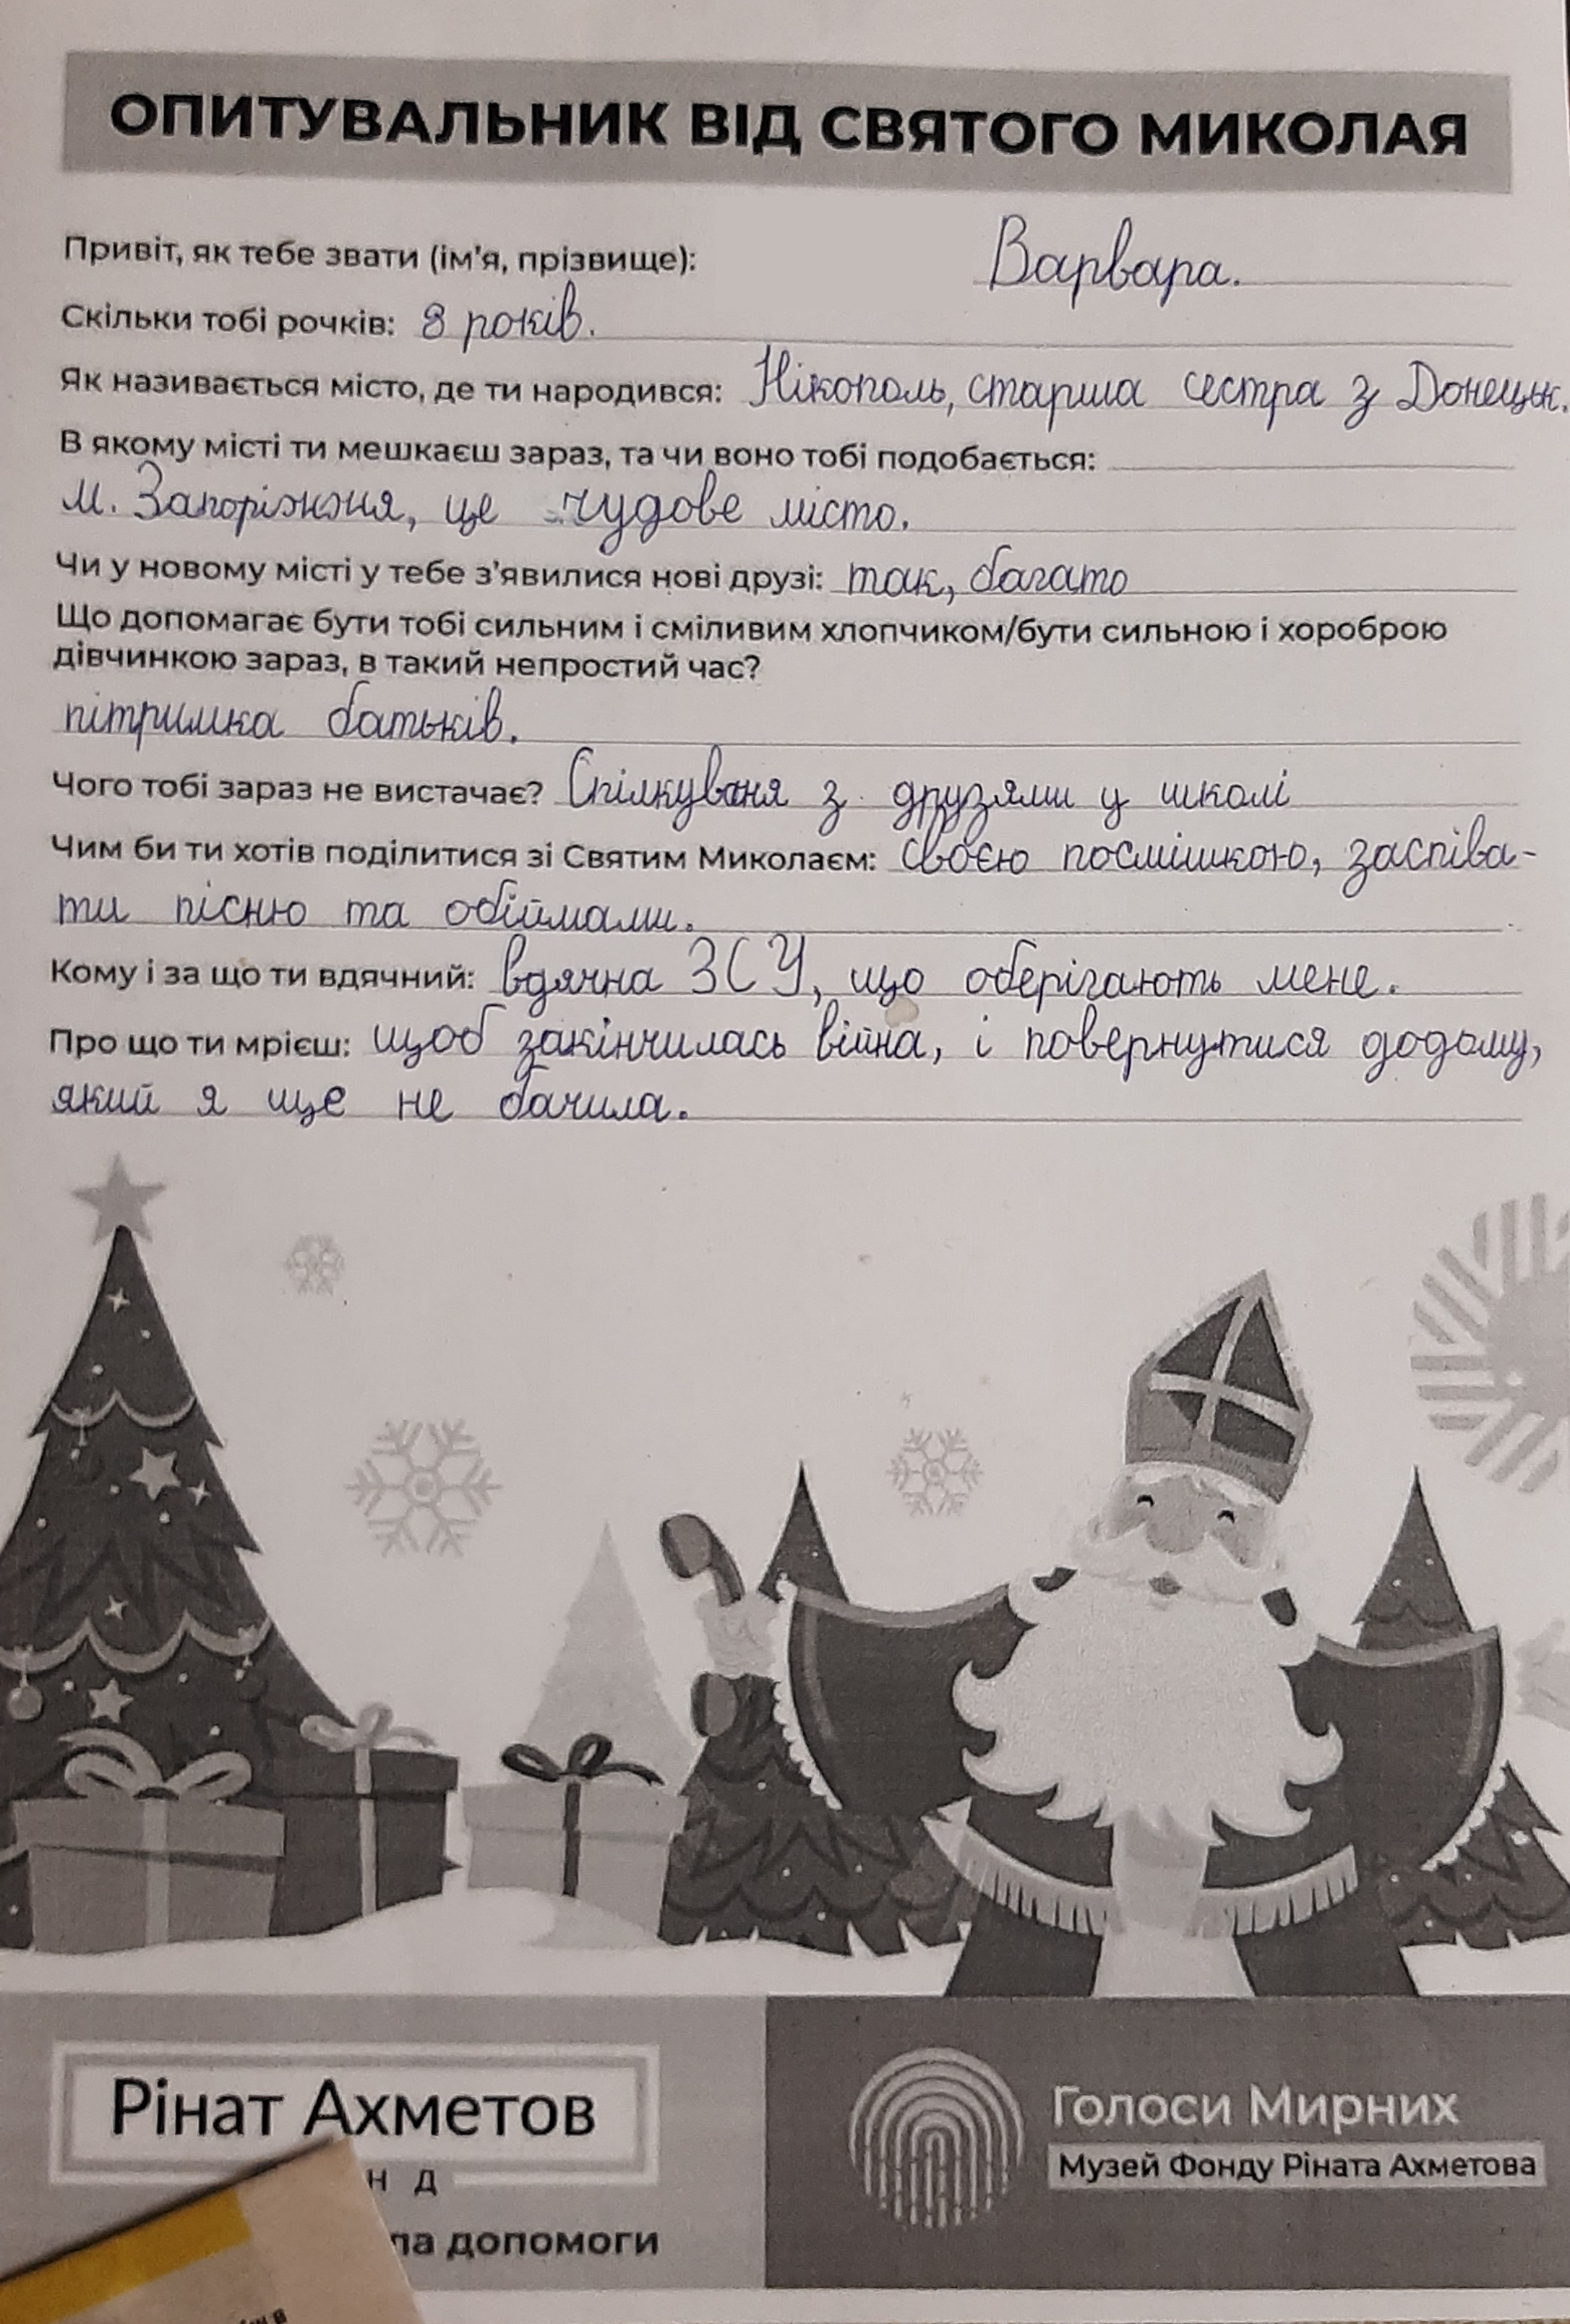 ОПИТУВАЛЬНИК ВІД СВЯТОГО МИКОЛАЯ
Привіт, як тебе звати (ім'я, прізвище): Варвара.
Скільки тобі рочків: 8 років.
Як називається місто, де ти народився: Нікополь, старша сестра з Донецьк.
В якому місті ти мешкаєш зараз, та чи воно тобі подобається:
м. Запоріжжя, це чудове місто.
Чи у новому місті у тебе з'явилися нові друзі: так, багато
Що допомагає бути тобі сильним і сміливим хлопчиком/бути сильною і хороброю
дівчинкою зараз, в такий непростий час?
пітримка батьків.
Чого тобі зараз не вистачає? Спілкуваня з друзями у школі
Чим би ти хотів поділитися зі Святим Миколаєм: своєю посмішкою, заспіва-
ти пісню та обіймами.
Кому і за що ти вдячний: вдячна ЗСУ, що оберігають мене.
Про що ти мрієш: щоб закінчилась війна, і повернутися додому,
який я ще не бачила.
Рінат Ахметов
Н Д
ла допомоги
Голоси Мирних
Музей Фонду Ріната Ахметова